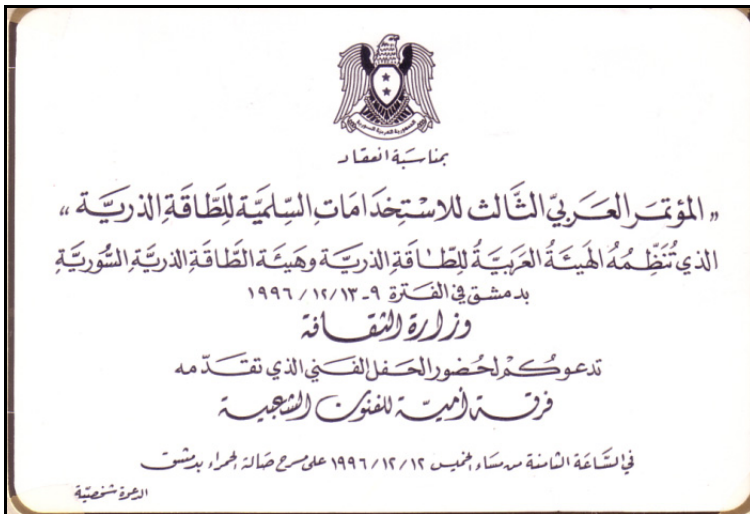 الجمهورية العربية السورية
بمناسبة انعقاد
« المؤتمر العربي الثالث للاستخدامات السلمية للطاقة الذرية »
الذي تنظمه الهيئة العربية للطاقة الذرية وهيئة الطاقة الذرية السورية
بدمشق في الفترة ٩-١٩٩٦/١٢/١٣
وزارة الثقافة
تدعوكم لحضور الحفل الفني الذي تقدمه
فرقة أمية للفنون الشعبية
في الساعة الثامنة من مساء الخميس ١٩٩٦/١٢/١٢ على مسرح صالة الحمراء بدمشق
الدعوة شخصية